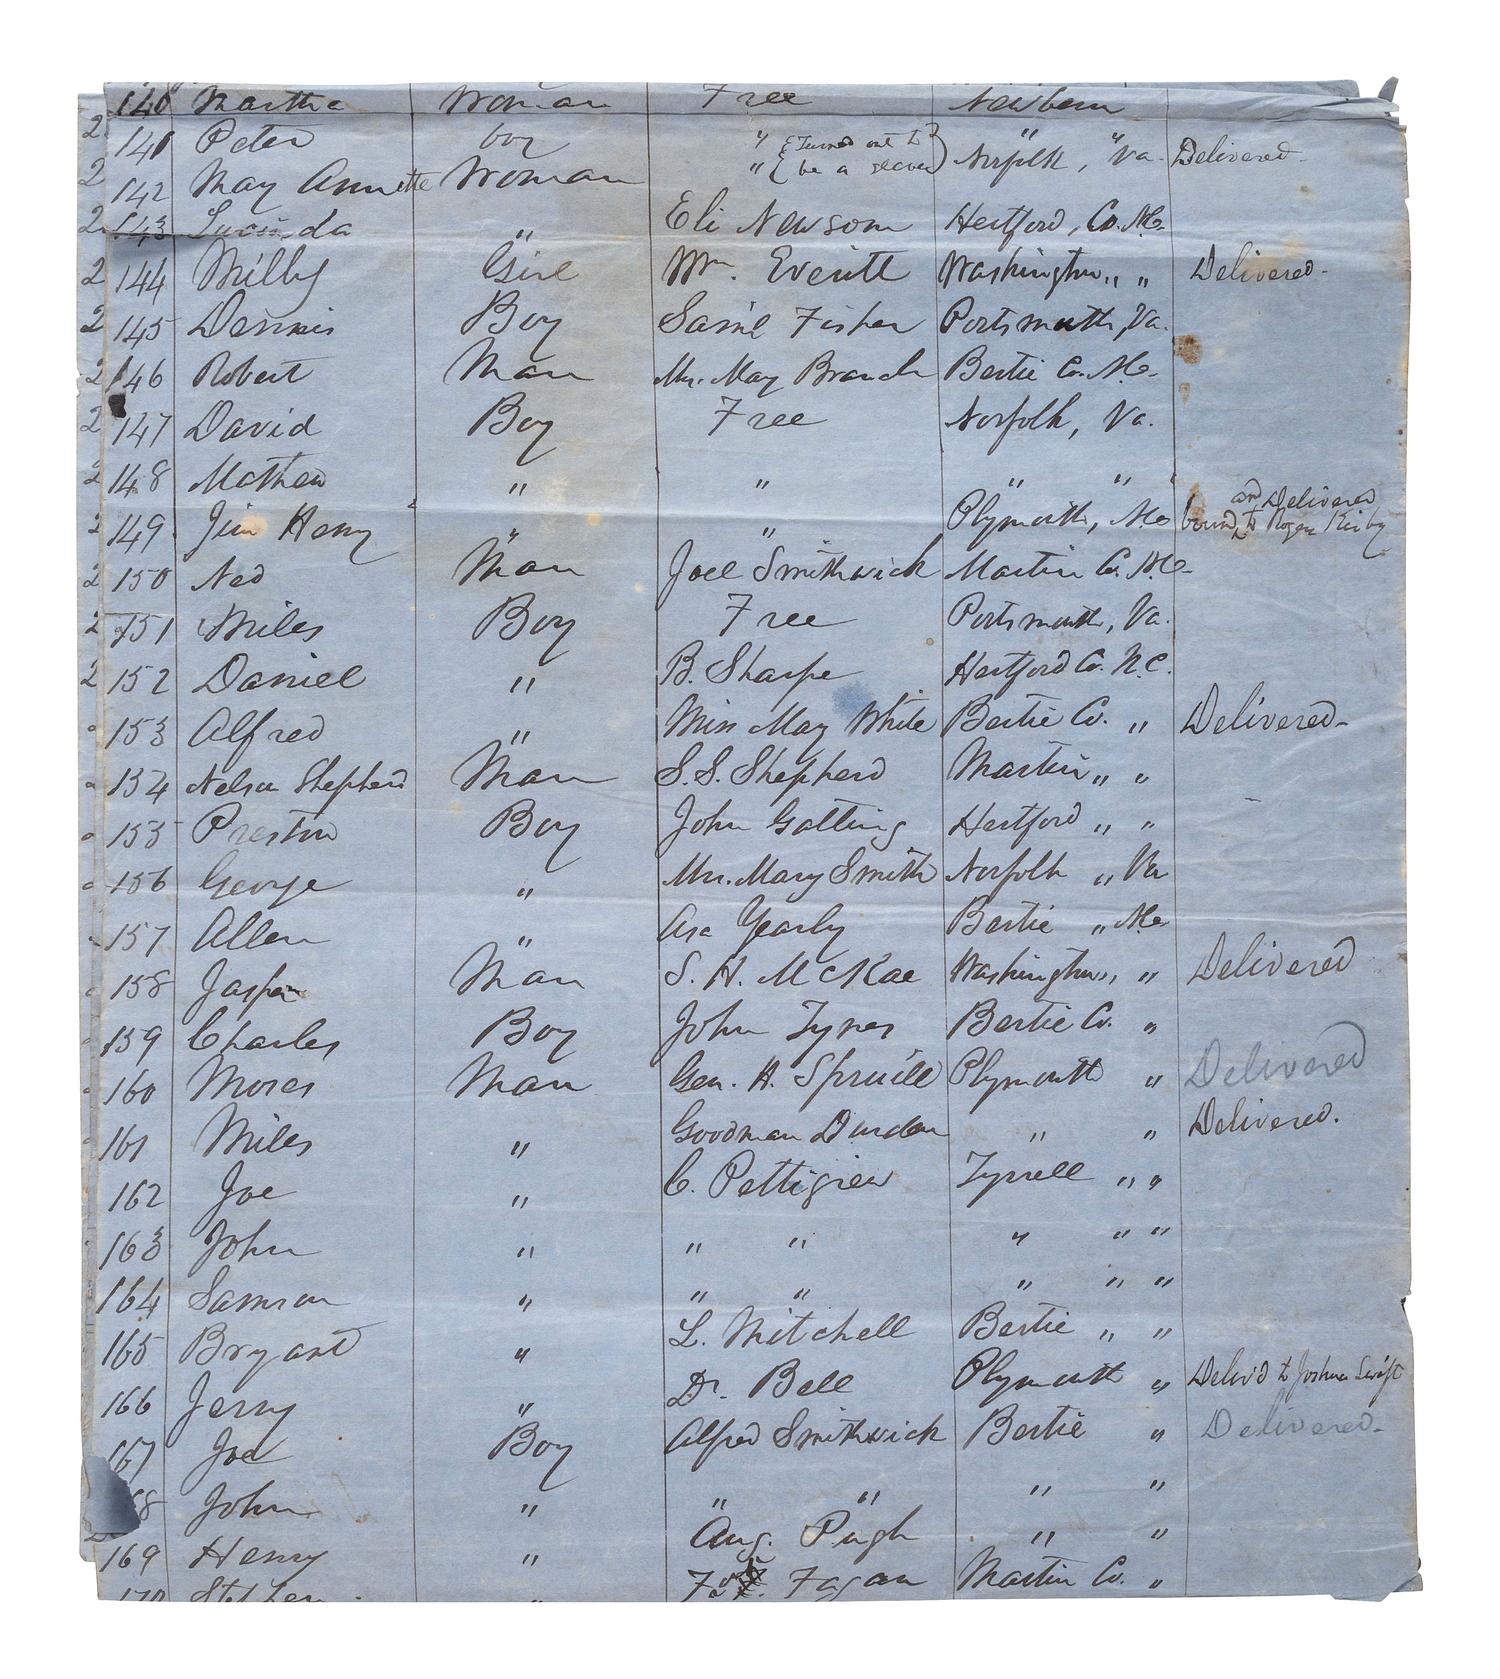 140 Martha Woman Free Newbern
2 141 Peter boy " {Turned out to} " "
2 142 May Annette Woman " {be a slave} Norfolk, Va. Delivered.
2 143 Lucinda " Eli Newsom Hertford, Co. N.C.
2 144 Milly Girl Wm. Everitt Washington " " Delivered.
2 145 Dennis Boy Saml Fisher Portsmouth, Va.
2 146 Robert Man Mrs. May Branch Bertie Co. N.C.
2 147 David Boy Free Norfolk, Va.
2 148 Mathew " " " " and Delivered
2 149. Jim Henry " " Plymouth, N.C. bound to Roger Kirby
2 150 Ned Man Joel Smithwick Martin Co. N.C.
2 151 Miles Boy Free Portsmouth, Va.
2 152 Daniel " B. Sharpe Hertford Co. N.C.
153 Alfred " Miss May White Bertie Co. " Delivered.
154 Nelson Shepherd Man S.S. Shepherd Martin " "
155 Preston Boy John Gatling Hertford " "
156 George " Mrs. Mary Smith Norfolk " Va
157 Allen " Asa Yearly Bertie " N.C.
158 Jasper Man S. H. McRae Washington " " Delivered
159 Charles Boy John Tyner Bertie Co. "
160 Moses Man Gen. H. Spruill Plymouth " Delivered
161 Miles " Goodman Durden " " Delivered.
162 Joe " C. Pettigrew Tyrrell " "
163 John " " " " " "
164 Samson " " " " " "
165 Bryant " L. Mitchell Bertie " "
166 Jerry " Dr. Bell Plymouth " Deliv'd to Joshua Swift
167 Joe Boy Alfred Smithwick Bertie " Delivered.
68 John " " " " "
169 Henry " Aug. Pugh " "
170 Stephen " Fagan Martin Co. "